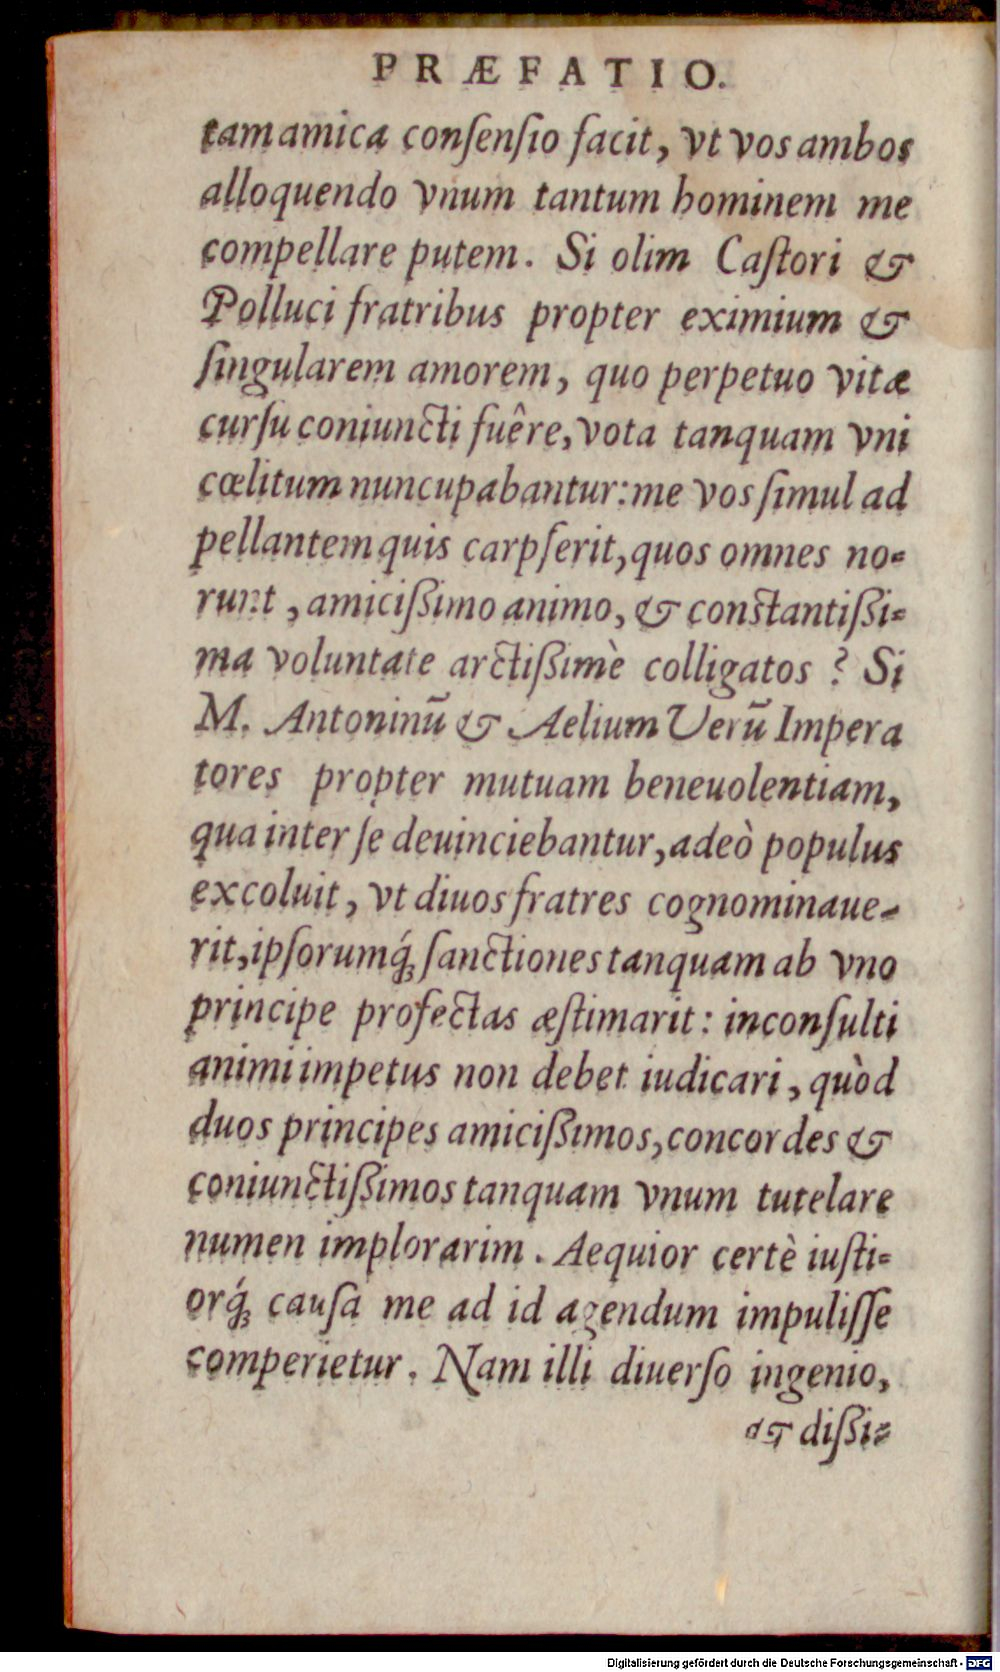 PRÆFATIO.
tam amica conſenſio facit, vt vos ambos
alloquendo vnum tantum hominem me
compellare putem. Si olim Caſtori &
Polluci fratribus propter eximium &
ſingularem amorem, quo perpetuo vitæ
curſu coniuncti fuêre, vota tanquam vni
cœlitum nuncupabantur: me vos ſimul ad
pellantem quis carpſerit, quos omnes no-
runt, amicißimo animo, & constantißi-
ma voluntate arctißimè colligatos? Si
M. Antoninū & Aelium Verū Impera
tores propter mutuam beneuolentiam,
qua inter ſe deuinciebantur, adeò populus
excoluit, vt diuos fratres cognominaue-
rit, ipſorumq́; ſanctiones tanquam ab vno
principe profectas æſtimarit: inconſulti
animi impetus non debet iudicari, quòd
duos principes amicißimos, concordes &
coniunctißimos tanquam vnum tutelare
numen implorarim. Aequior certè iuſti-
orq́; cauſa me ad id agendum impuliſſe
comperietur. Nam illi diuerſo ingenio,
& dißi-
Digitalisierung gefördert durch die Deutsche Forschungsgemeinschaft - DFG